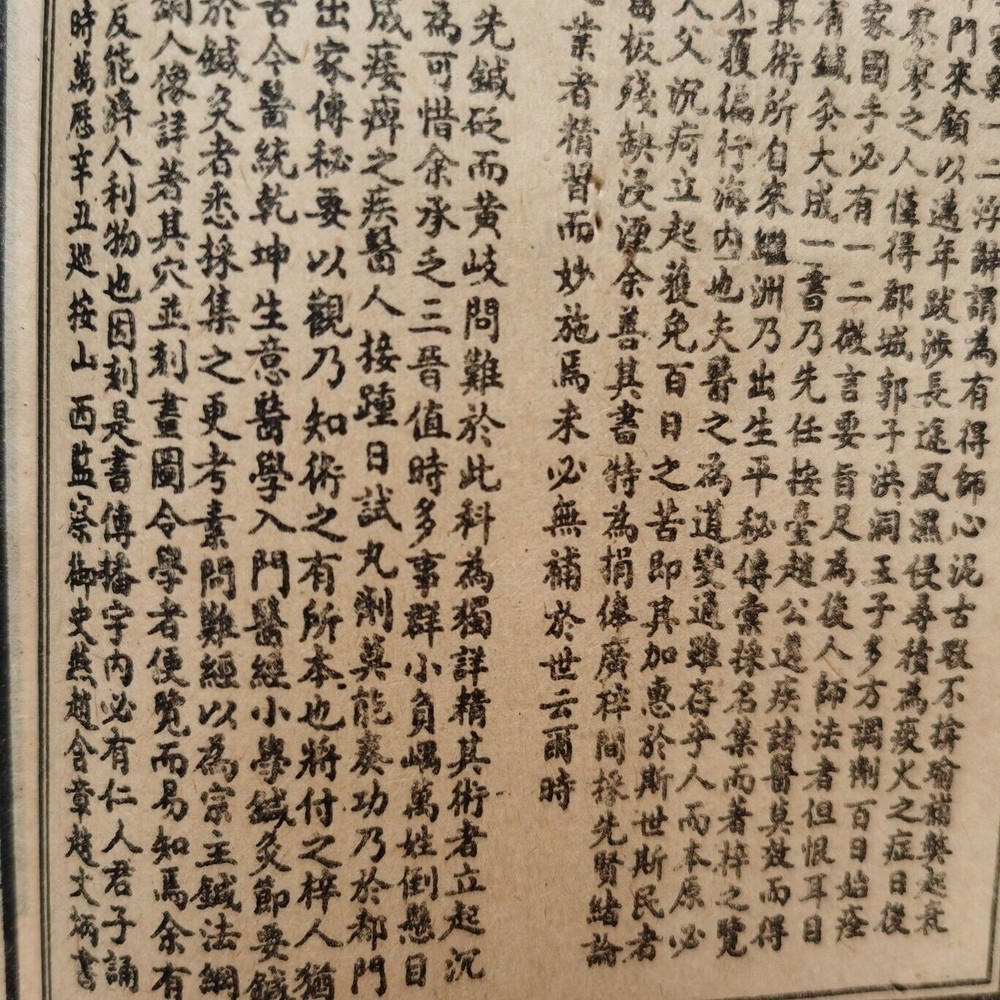 一二浮辭謂為有得師心泥古瑕不揜瑜補弊起衰
門來顧以邁年跋涉長途風濕侵尋積為痰火之症日後
寥寥之人僅得郡城郭子洪洞王子多方調劑百日始痊
家國手必有一二微言要旨足為後人師法者但恨耳目
有鍼灸大成一書乃先任按臺趙公遘疾諸醫莫效而得
其術所自來繼洲乃出生平秘傳彙採名集而著梓之覽
不獲徧行海內也夫醫之為道變通雖存乎人而本原必
人父沉疴立起獲免百日之苦即其加惠於斯世斯民者
舊板殘缺浸湮余善其書特為捐俸廣梓間採先賢緒論
業者精習而妙施焉未必無補於世云爾時
先鍼砭而黃岐問難於此科為獨詳精其術者立起沉
為可惜余承乏三晉值時多事群小負嵎萬姓倒懸目
成痿痺之疾醫人接踵日試丸劑莫能奏功乃於都門
出家傳秘要以觀乃知術之有所本也將付之梓人猶
古今醫統乾坤生意醫學入門醫經小學鍼灸節要鍼
於鍼灸者悉採集之更考素問難經以為宗主鍼法綱
銅人像詳著其穴並刻畫圖令學者便覽而易知焉余有
反能濟人利物也因刻是書傳播宇內必有仁人君子誦
時萬歷辛丑巡按山西監察御史燕趙含章趙文炳書